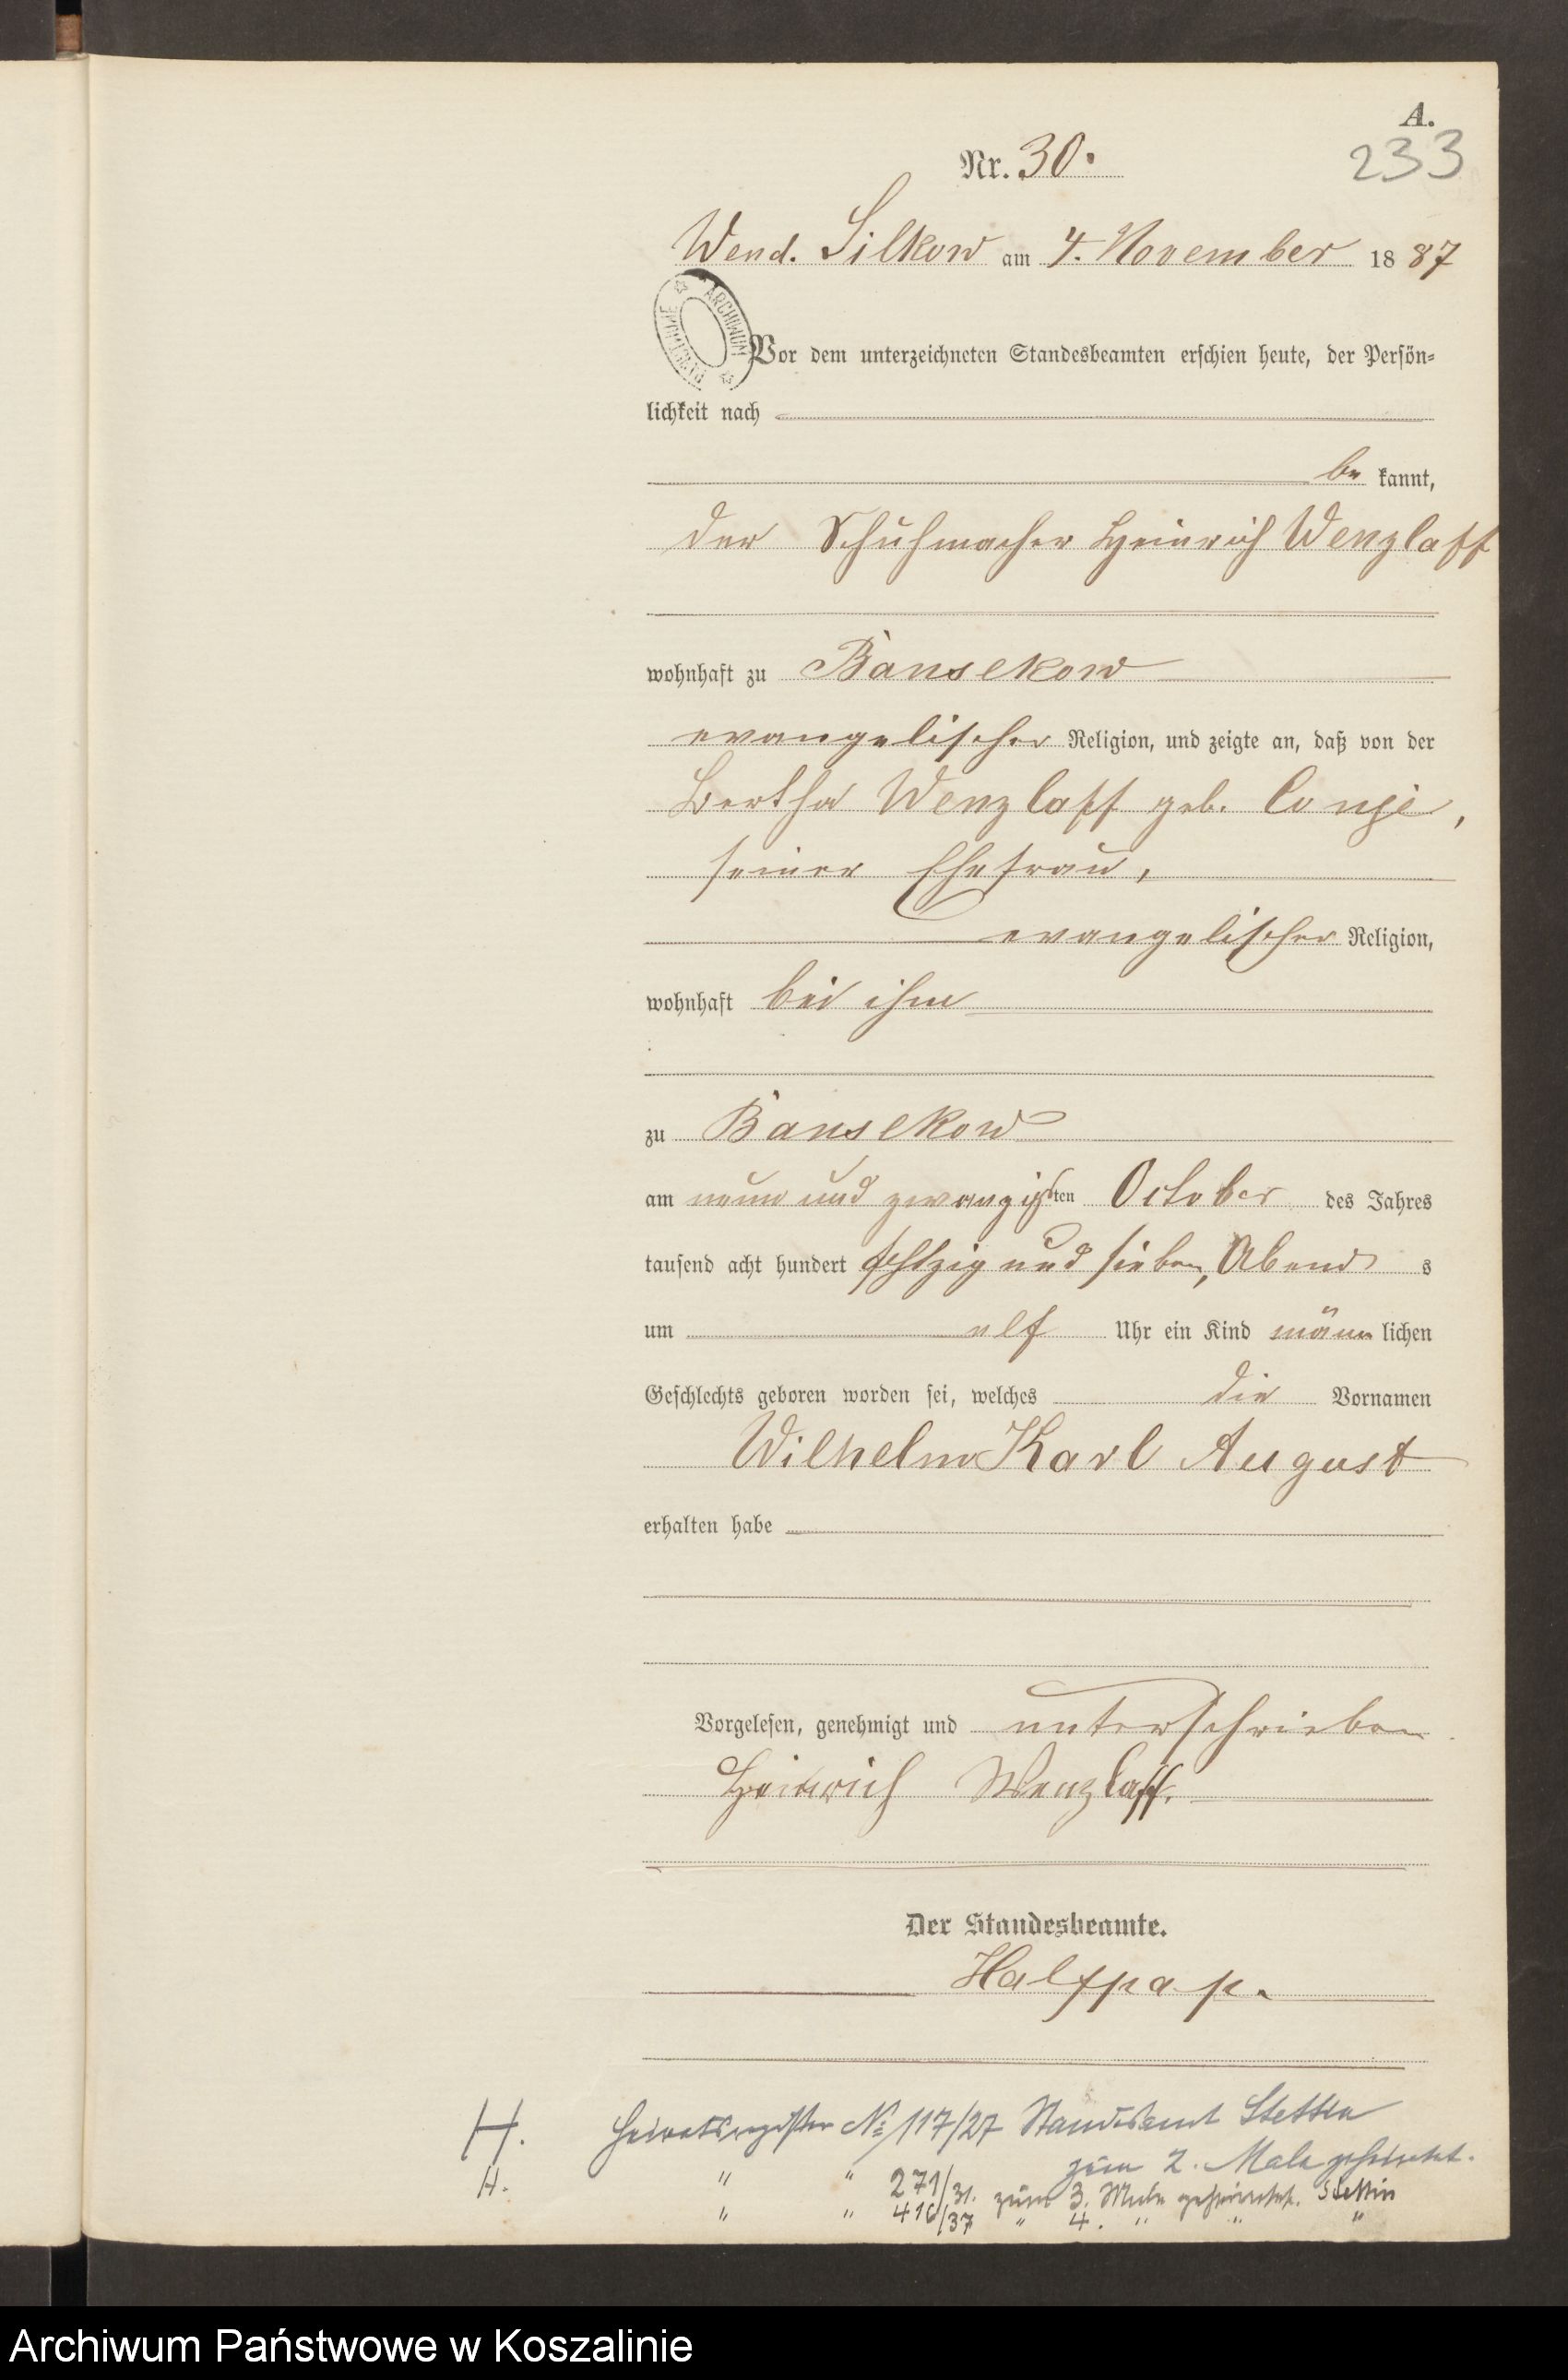 A.
Nr. 30.
233
Wend. Silkow am 4. November 1887
ARCHIWUM PAŃSTWOWE
Vor dem unterzeichneten Standesbeamten erschien heute, der Persön=
lichkeit nach
be kannt,
der Schuhmacher Heinrich Wenzlaff
wohnhaft zu Bansekow
evangelischer Religion, und zeigte an, daß von der
Bertha Wenzlaff geb.
seiner Ehefrau,
evangelischer Religion,
wohnhaft bei ihm
zu Bansekow
am neun und zwanzigsten October des Jahres
tausend acht hundert achtzig und sieben, Abends
um elf Uhr ein Kind männlichen
Geschlechts geboren worden sei, welches die Vornamen
Wilhelm Karl August
erhalten habe
Vorgelesen, genehmigt und unterschrieben
Heinrich Wenzlaff.
Der Standesbeamte.
Halfpap.
H. Heiratsregister No 117/27 Standesamt Stettin
zum 2. Male geheiratet.
H. " " 271/31. zum 3. Male geheiratet. Stettin
" " 416/37 " 4. " " "
Archiwum Państwowe w Koszalinie